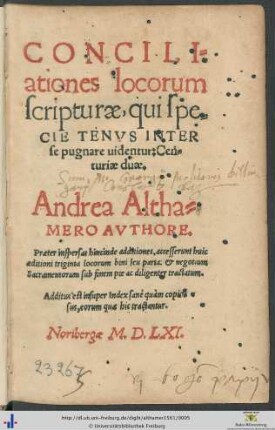 CONCILI-
ationes locorum
scripturæ, qui spe-
CIE TENVS INTER
se pugnare uidentur: Cen-
turiæ duæ,
Andrea Altha-
MERO AVTHORE.
Præter inspersas hincinde additiones, accesserunt huic
æditioni triginta locorum
Sacramentorum sub finem pie ac diligenter tractatum.
Additus est insuper Index sanè quàm copio-
sus, eorum quæ hic tractantur.
Noribergæ M. D. LXI.
23967
http://dl.ub.uni-freiburg.de/diglit/althamer1561/0005
© Universitätsbibliothek Freiburg
Baden-Württemberg